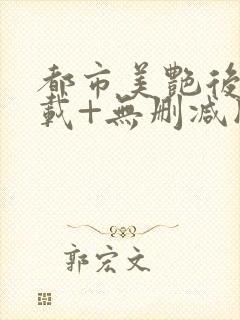 都市美艷後
載+無刪減
郭宏文